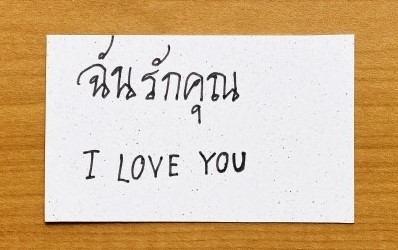 ฉันรักคุณ
I LOVE YOU